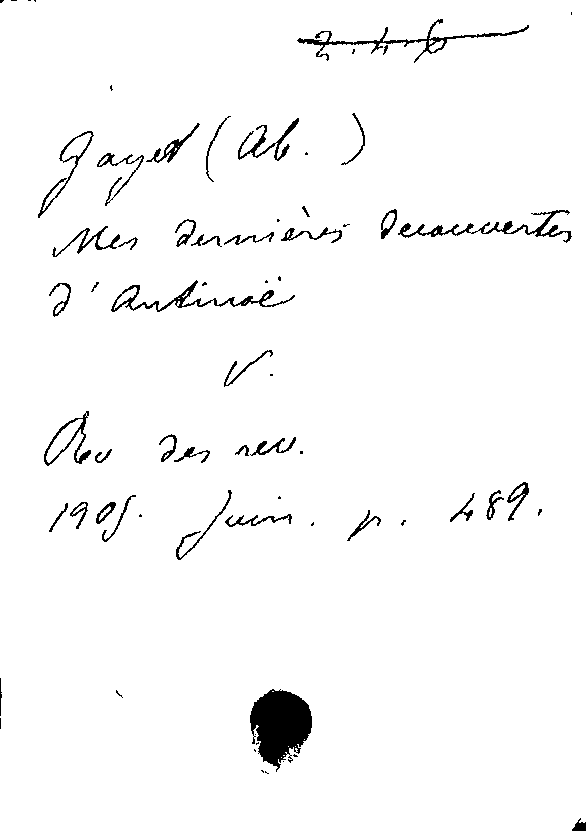 2.4.6
Gayet (Ab.)
Mes dernières decouvertes
d'Antinoë
V.
Rev des rev.
1905. Juin. p. 489.